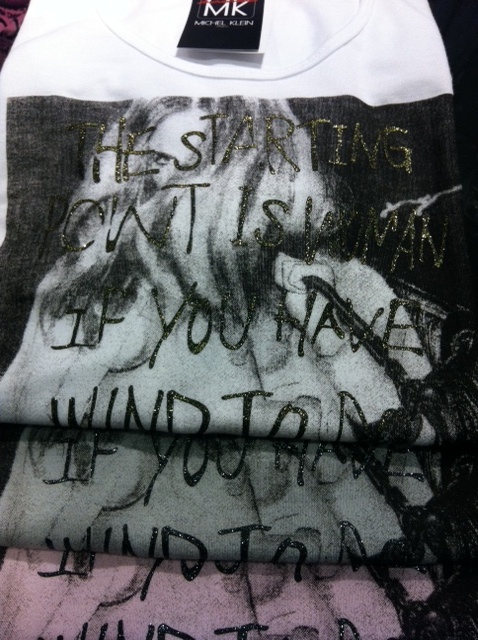 MK
MICHEL KLEIN
THE STARTING
POINT IS WOMAN
IF YOU HAVE
WIND TO D
IF YOU HAVE
WIND TO D
WIND TO